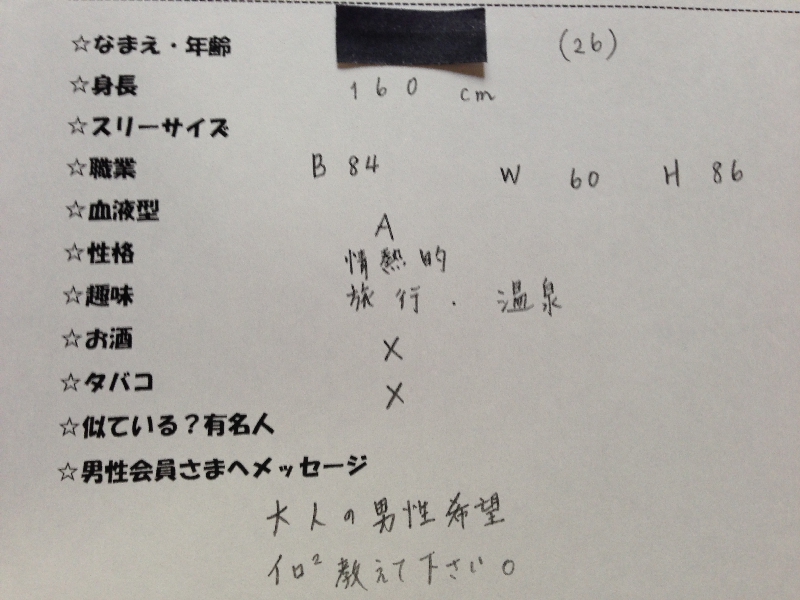 ☆なまえ・年齢 (26)
☆身長 160 cm
☆スリーサイズ
☆職業 B 84 W 60 H 86
☆血液型 A
☆性格 情熱的
☆趣味 旅行. 温泉
☆お酒 ×
☆タバコ ×
☆似ている？有名人
☆男性会員さまへメッセージ
大人の男性希望
イロ² 教えて下さい。